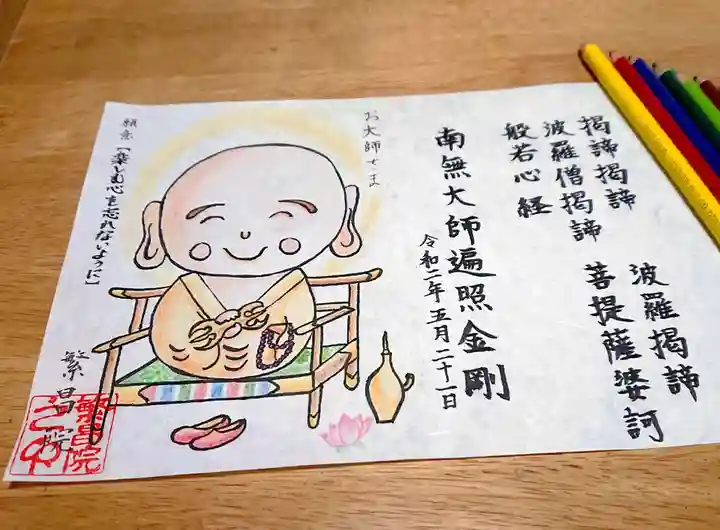 揭諦揭諦 波羅揭諦
波羅僧揭諦 菩提薩婆訶
般若心経
南無大師遍照金剛
令和二年五月二十一日
お大師さま
願意【楽しむ心を忘れないように】
繁昌院
繁昌院